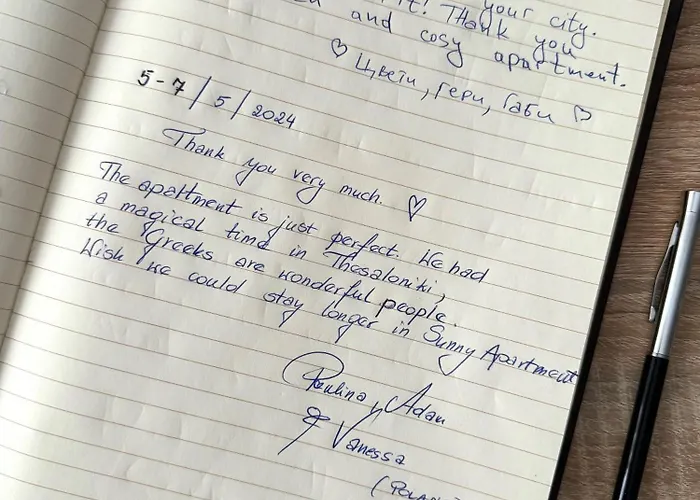 it! Thank you
your city.
and cosy apartment.
♡ Цвети, Гери, Габи ♡
5-7/5/2024
Thank you very much. ♡
The apartment is just perfect. We had
a magical time in Thesaloniki,
the Greeks are wonderful people.
Wish we could stay longer in Sunny Apartment
Paulina, Adam
& Vanessa